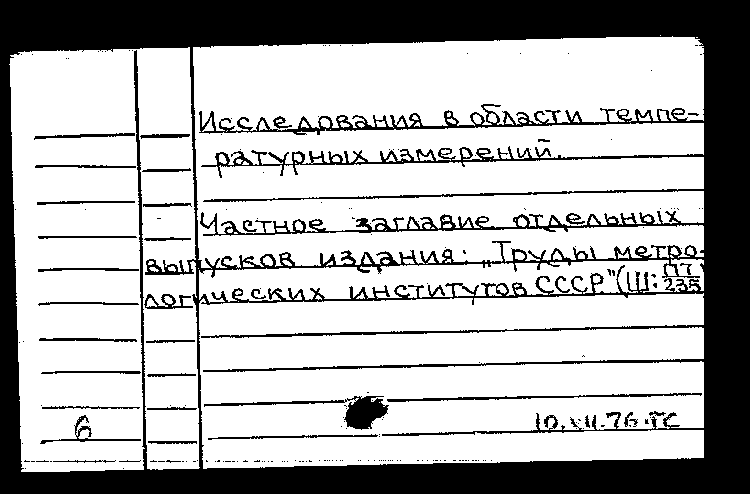 Исследования в области темпе-
ратурных измерений.
Частное заглавие отдельных
выпусков издания: „Труды метро-
логических институтов СССР"(Ш: П7/235)
6
10.XII.76.ГС